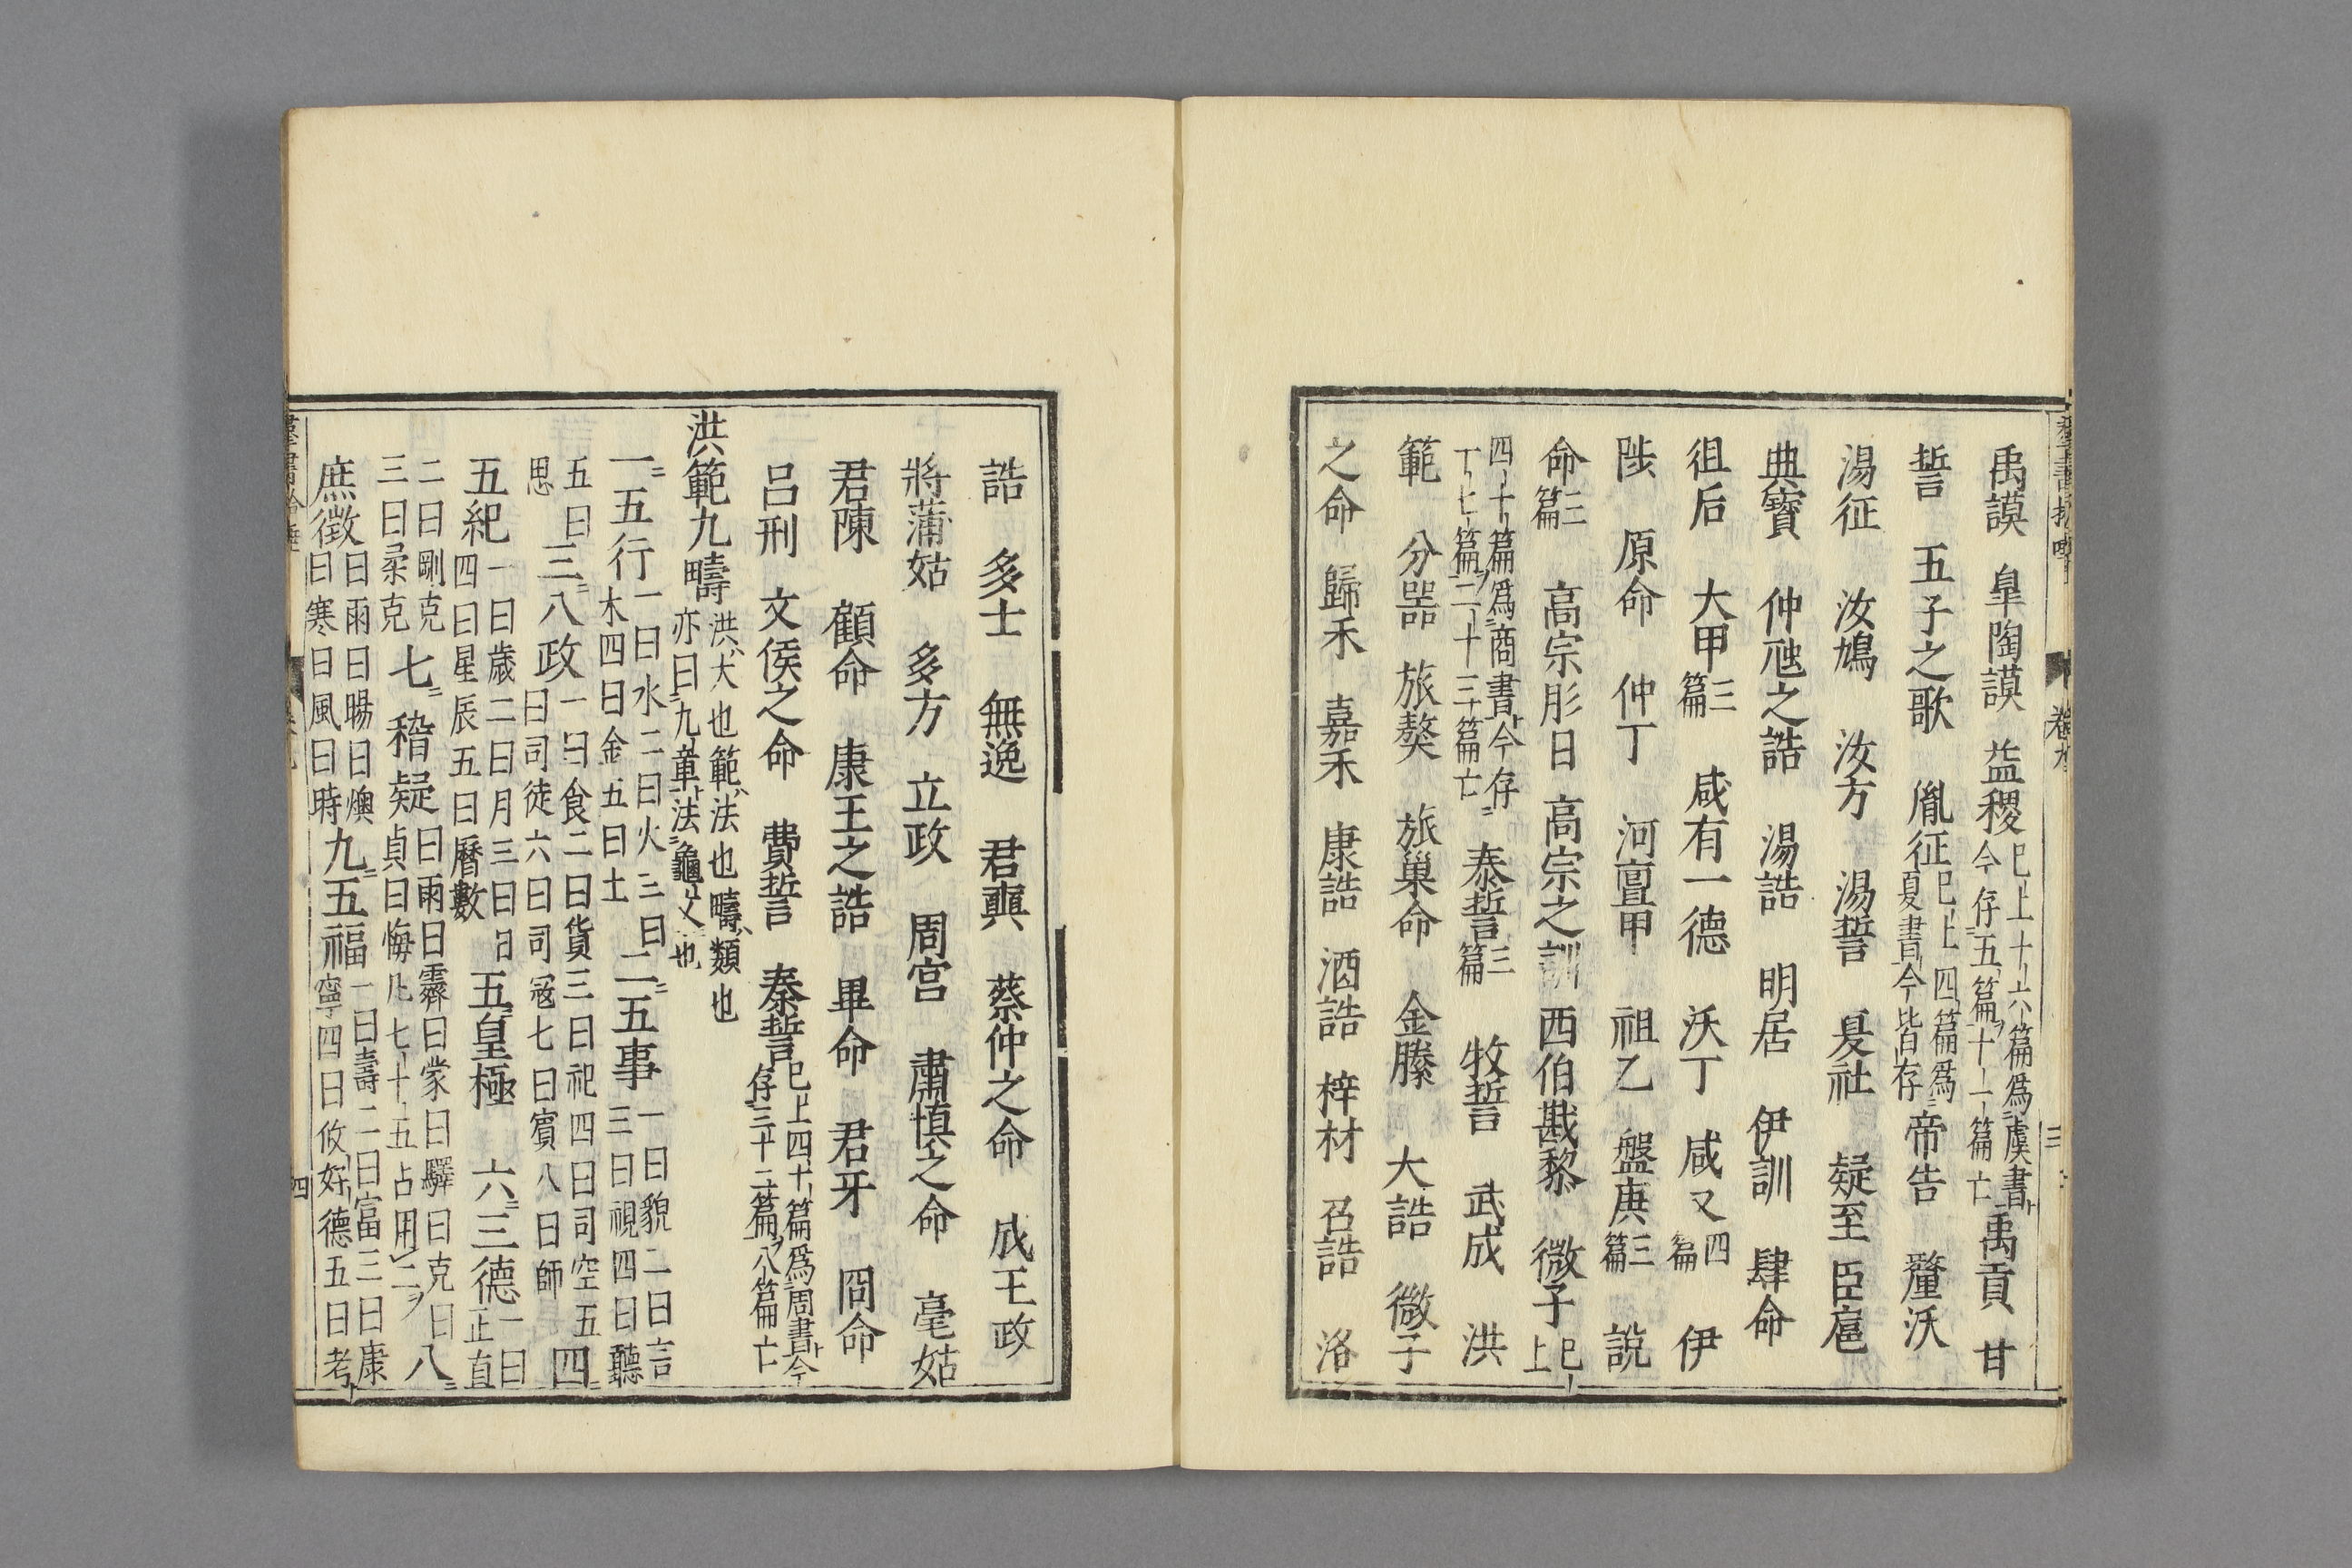 禹謨 皐陶謨 益稷 巳上十六篇爲虞書今存五篇十一篇亡 禹貢 甘
誓 五子之歌 胤征 巳上四篇爲夏書今皆存 帝告 釐沃
湯征 汝鳩 汝方 湯誓 夏社 疑至 臣扈
典寶 仲虺之誥 湯誥 明居 伊訓 肆命
徂后 大甲三篇 咸有一德 沃丁 咸乂四篇 伊
陟 原命 仲丁 河亶甲 祖乙 盤庚三篇 說
命三篇 高宗肜日 高宗之訓 西伯戡黎 微子 巳上
四十篇爲商書今存十七篇二十三篇亡 泰誓三篇 牧誓 武成 洪
範 分噐 旅獒 旅巢命 金縢 大誥 微子
之命 歸禾 嘉禾 康誥 酒誥 梓材 召誥 洛
誥 多士 無逸 君奭 蔡仲之命 成王政
將蒲姑 多方 立政 周官 肅慎之命 亳姑
君陳 顧命 康王之誥 畢命 君牙 冏命
呂刑 文侯之命 費誓 秦誓 巳上四十篇爲周書今存三十二篇八篇亡
洪範九疇 洪大也範法也疇類也亦曰九章法龜文也
一五行 一曰水二曰火三曰木四曰金五曰土 二五事 一曰貌二曰言三曰視四曰聽
五曰思 三八政 一曰食二曰貨三曰祀四曰司空五曰司徒六曰司寇七曰賓八曰師 四
五紀 一曰歲二曰月三曰日四曰星辰五曰曆數 五皇極 六三德 一曰正直
二曰剛克三曰柔克 七稽疑 曰雨曰霽曰蒙曰驛曰克曰貞曰悔凡七十五占用二 八
庶徵 曰雨曰暘曰燠曰寒曰風曰時 九五福 一曰壽二曰富三曰康寧四曰攸好德五曰考
四